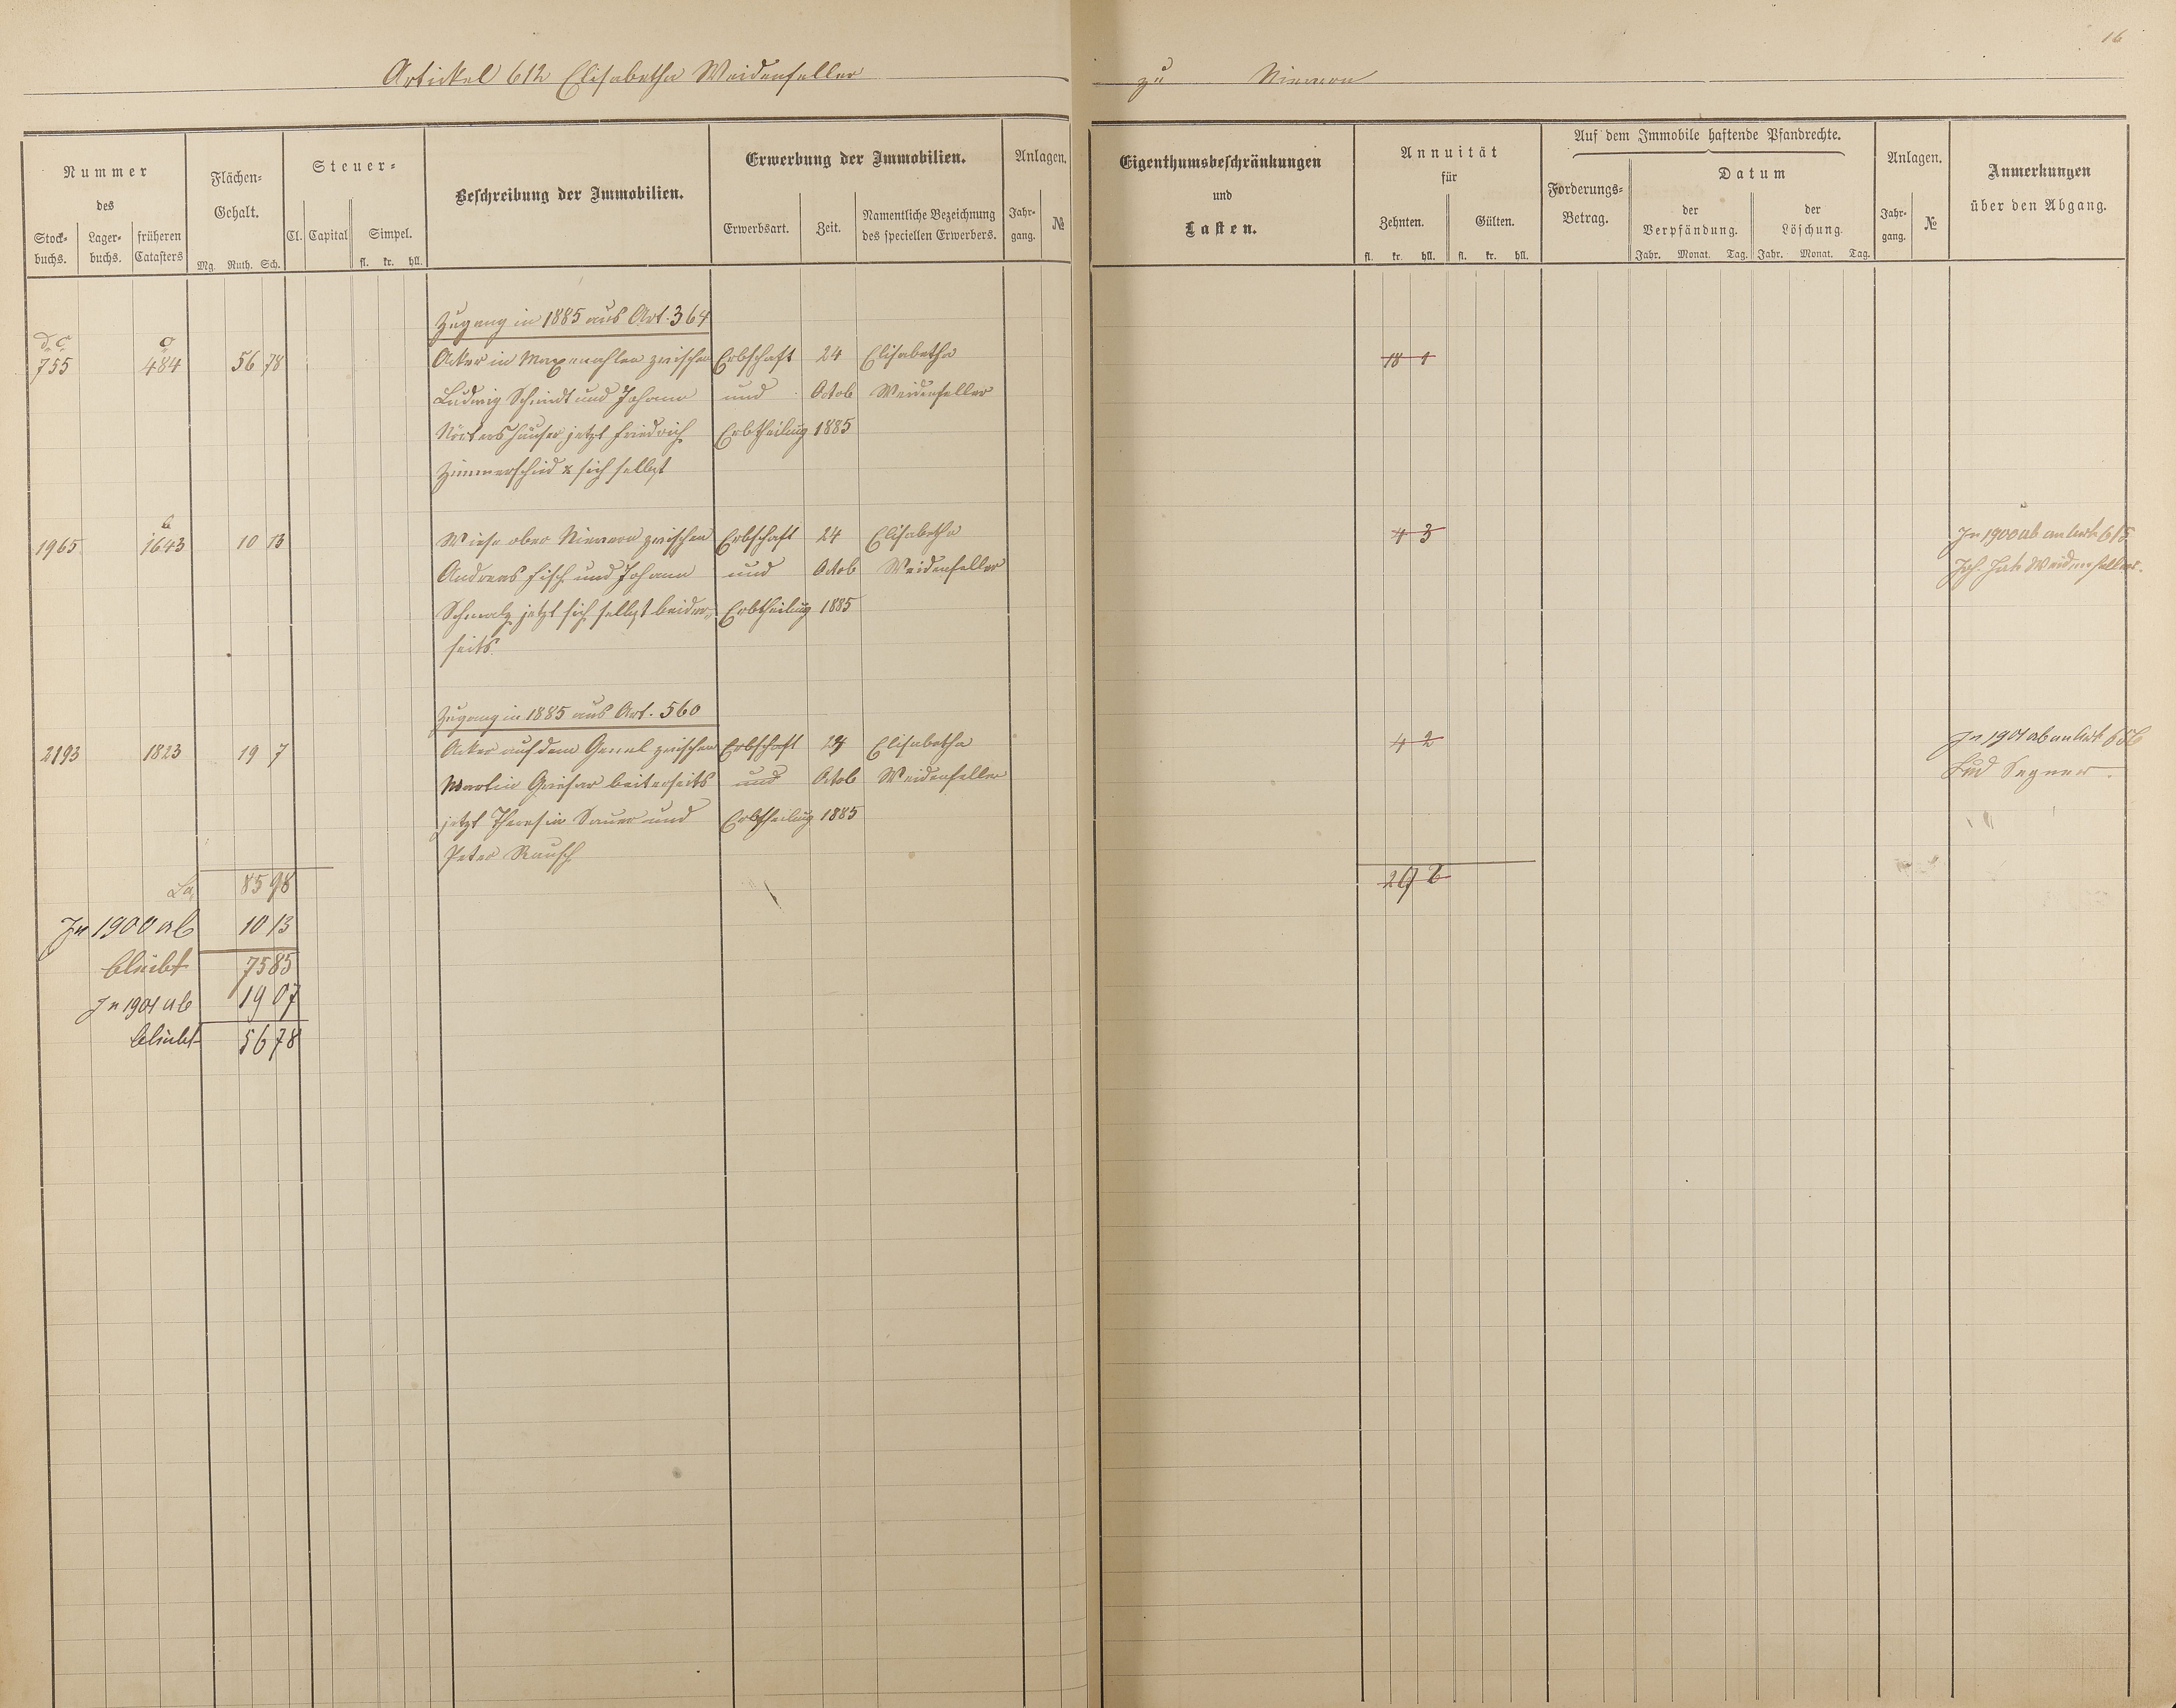 16
Artickel 612 Elisabetha Weidenfeller zu Nievern
Nummer des
Stock- buchs. Lager- buchs. früheren Catasters
Flächen- Gehalt.
Mg. Ruth. Sch.
Steuer-
Cl. Capital Simpel.
fl. kr. hll.
Beschreibung der Immobilien.
Erwerbung der Immobilien.
Erwerbsart. Zeit. Namentliche Bezeichnung des speciellen Erwerbers.
Anlagen.
Jahr- gang. №
Eigenthumsbeschränkungen
und
Lasten.
Annuität
für
Zehnten. Gülten.
fl. kr. hll. fl. kr. hll.
Auf dem Immobile haftende Pfandrechte.
Forderungs- Betrag.
Datum
der Verpfändung. der Löschung.
Jahr. Monat. Tag. Jahr. Monat. Tag.
Anlagen.
Jahr- gang. №
Anmerkungen
über den Abgang.
Zugang in 1885 aus Art. 364
755 484 56 78 Acker in zwischen Erbschaft 24 Elisabetha 18 1
Ludwig Schmidt und Johann und Octob Weidenfeller
Nörtershäuser jetzt Friedrich Erbtheilung 1885
Zimmerschied & sich selbst
1965 1643 10 13 Wiese ober Nievern zwischen Erbschaft 24 Elisabetha 4 3 In 1900 ab an Art. 615
Andreas Fisch und Johann und Octob Weidenfeller Joh. Weidenfeller.
Schmalz jetzt sich selbst beider- Erbtheilung 1885
seits.
Zugang in 1885 aus Art. 560
2193 1823 19 7 Acker auf dem zwischen Erbschaft 24 Elisabetha 4 2 In 1901 ab an Art. 656
Martin beiterseits und Octob Weidenfeller Lud Segner.
jetzt Theresia Sauer und Erbtheilung 1885
Peter Rausch
Sa. 85 98
In 1900 ab 10 13
bleibt 75 85
In 1901 ab 19 07
bleibt 56 78